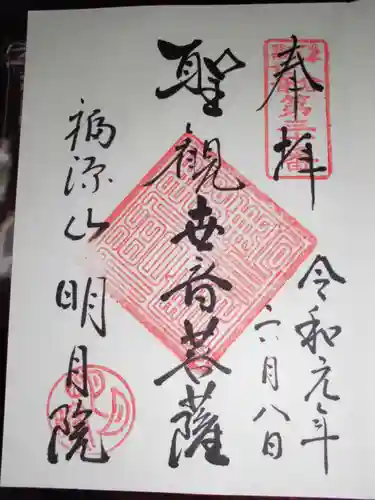 奉拝
令和元年
六月八日
聖観世音菩薩
福源山明月院